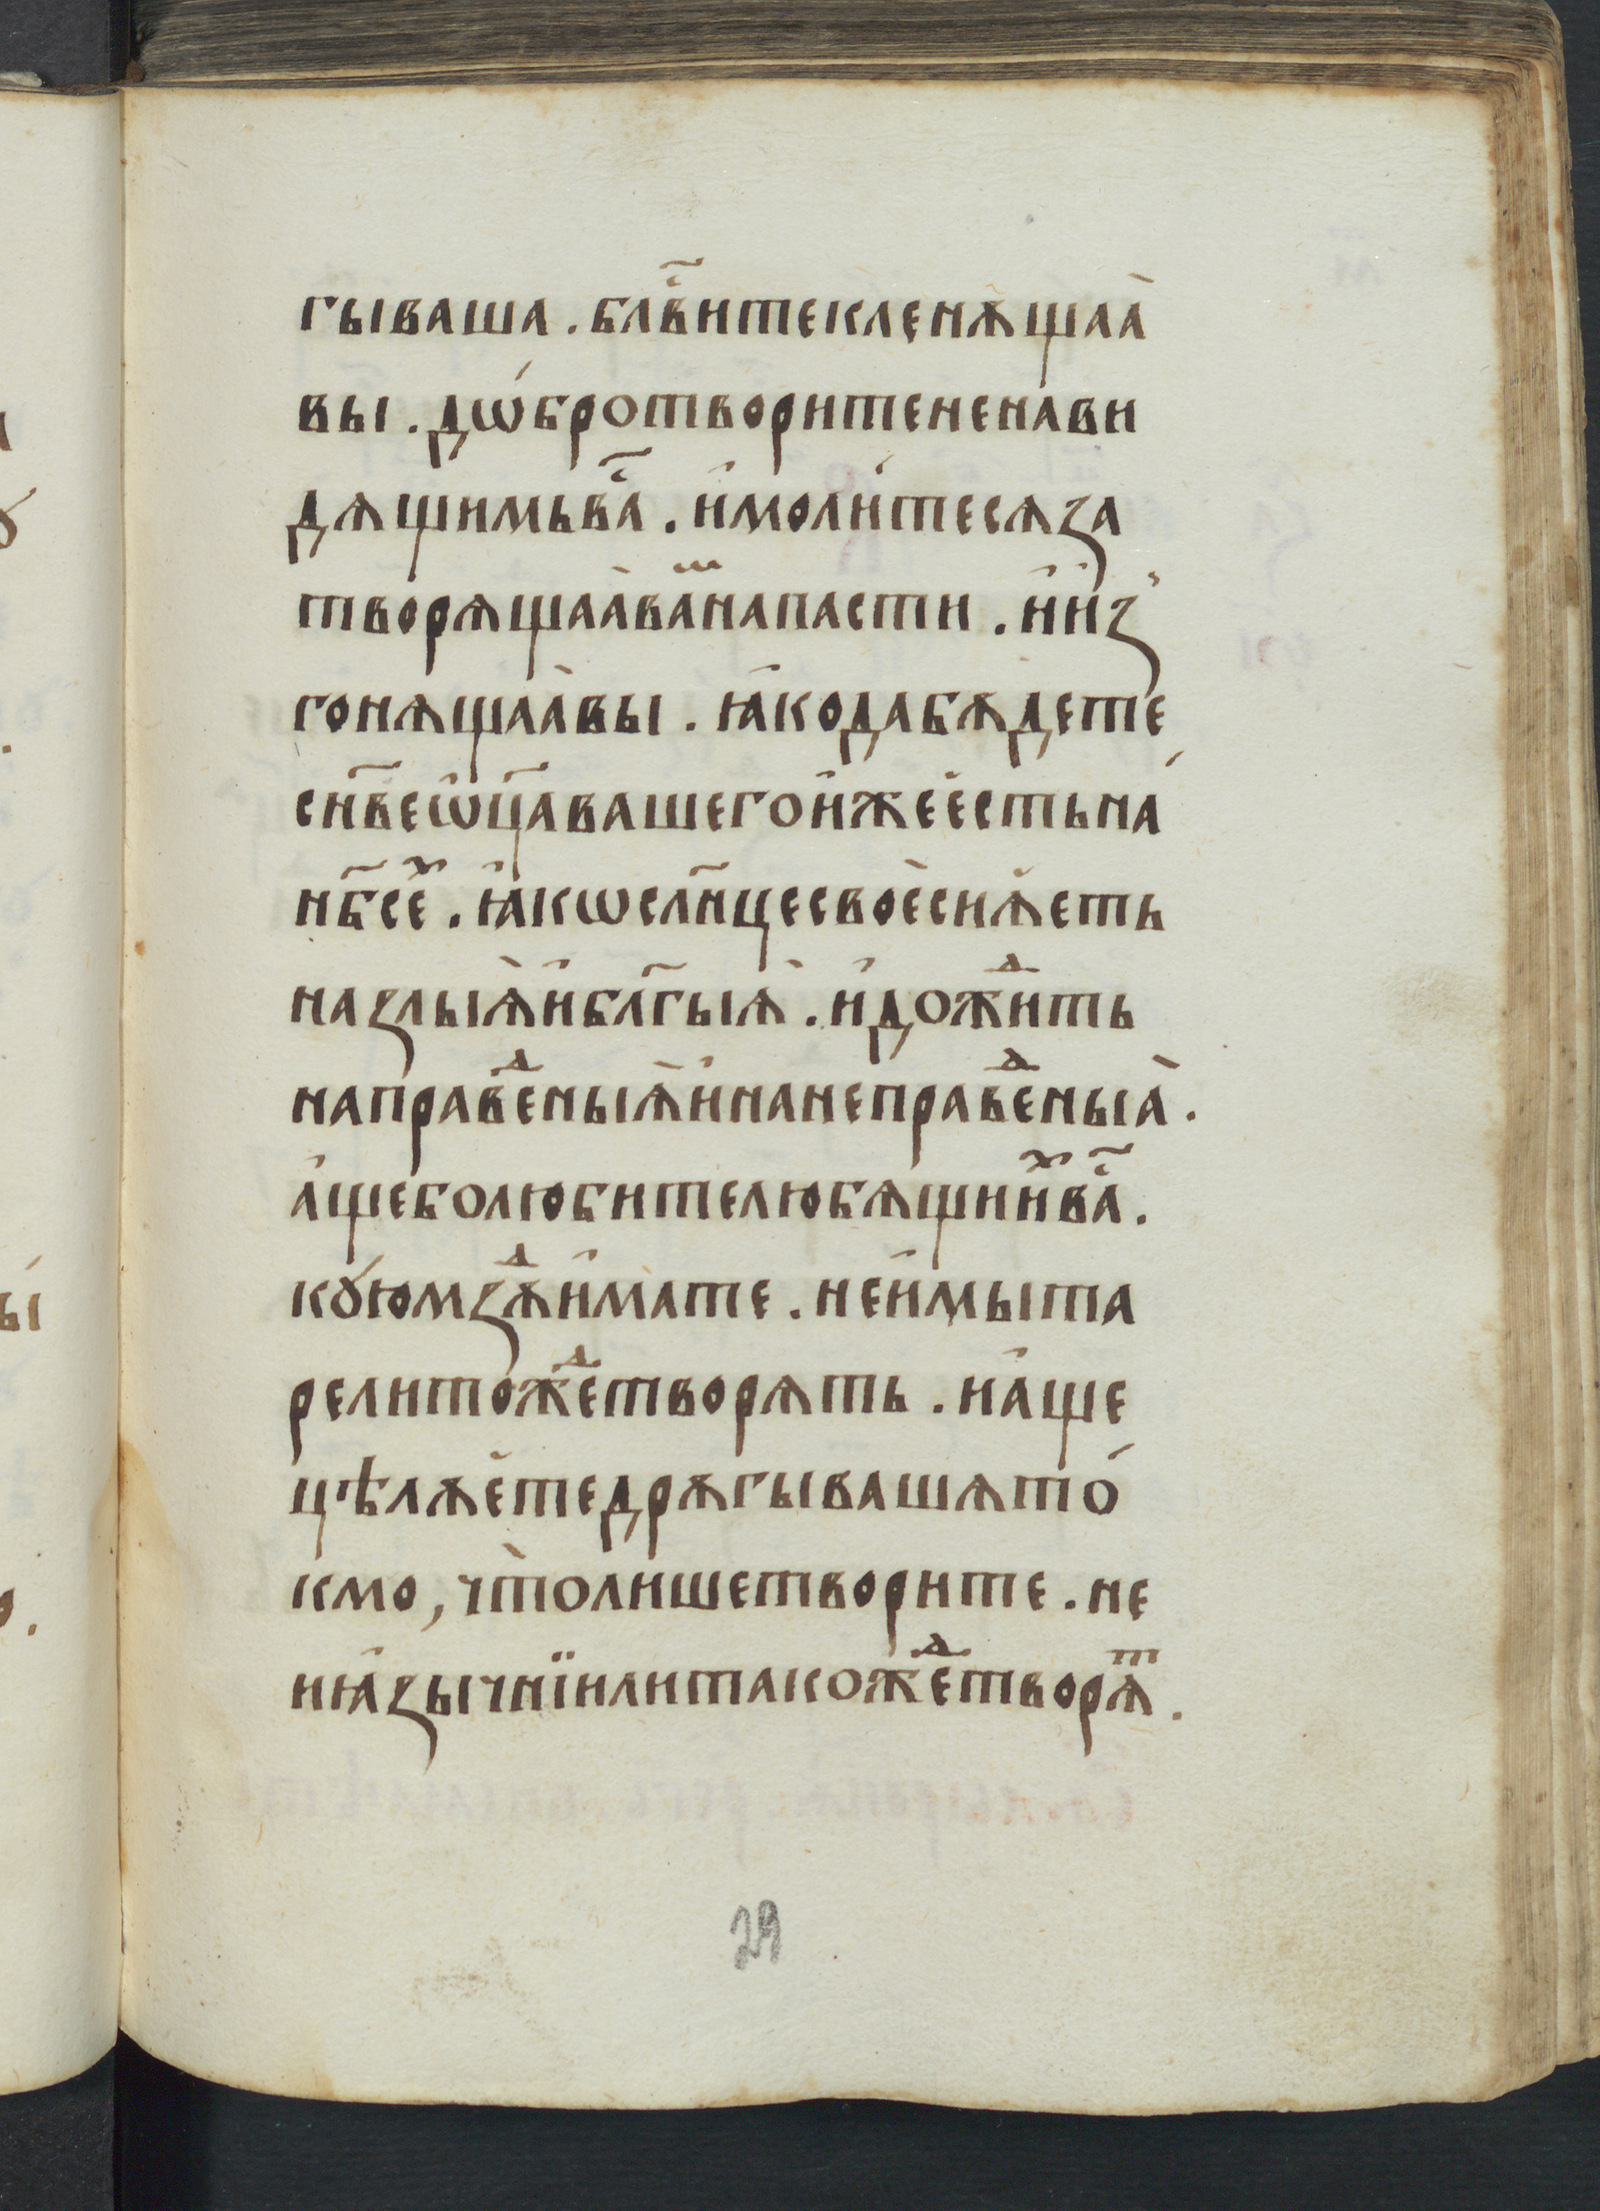 гы ваша . блв҃ите кленѫщаа
вы . дѡ́бро творите ненави
дѧщимь ва҃с . и҆ моли́те сѧ за
творѧщаа̀ ваⷨ напасти . и҆ и҆з
гонѧщаа̀ вы . ꙗ҆ко да бѫдете́
сн҃ве ѡ҆ц҃а вашего и҆же е҆сть на
нб҃сеⷯ . ꙗ҆кѡ сл҃нце своѐ сиѧ̀еть
на злыѧ̀ и҆ бл҃гыѧ . и҆ дожⷣить
на правⷣеныѧ̀ и҆ на неправⷣеныа̀ .
а҆ще бо любите любѧщииⷯ ва҃с .
кꙋ́ю мзⷣѫ и҆мате . не и҆ мыта
ре ли тожⷣе творѧть . и҆ а҆ще
цѣлѫ́ете дрѫгы вашѧ то́
кмо , что̀ лише творите . не
и ꙗ҆зычнїи ли такожⷣе творѧⷮ .
29